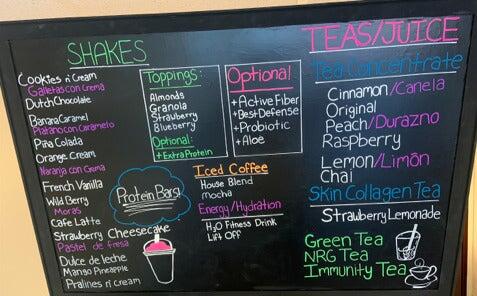 SHAKES
Cookies n' Cream
Galletas con Crema
Dutch Chocolate
Banana Caramel
Platano con Caramelo
Piña Colada
Orange Cream
Naranja con Crema
French Vanilla
Wild Berry
Moras
Cafe Latte
Strawberry Cheesecake
Pastel de fresa
Dulce de leche
Mango Pineapple
Pralines n' cream
Toppings:
Almonds
Granola
Strawberry
Blueberry
Optional:
+ Extra Protein
Optional
+Active Fiber
+Best Defense
+Probiotic
+Aloe
Protein Bars!
Iced Coffee
House Blend
mocha
Energy/Hydration
H2O Fitness Drink
Lift Off
TEAS/JUICE
Tea Concentrate
Cinnamon/Canela
Original
Peach/Durazno
Raspberry
Lemon/Limón
Chai
Skin Collagen Tea
Strawberry Lemonade
Green Tea
NRG Tea
Immunity Tea